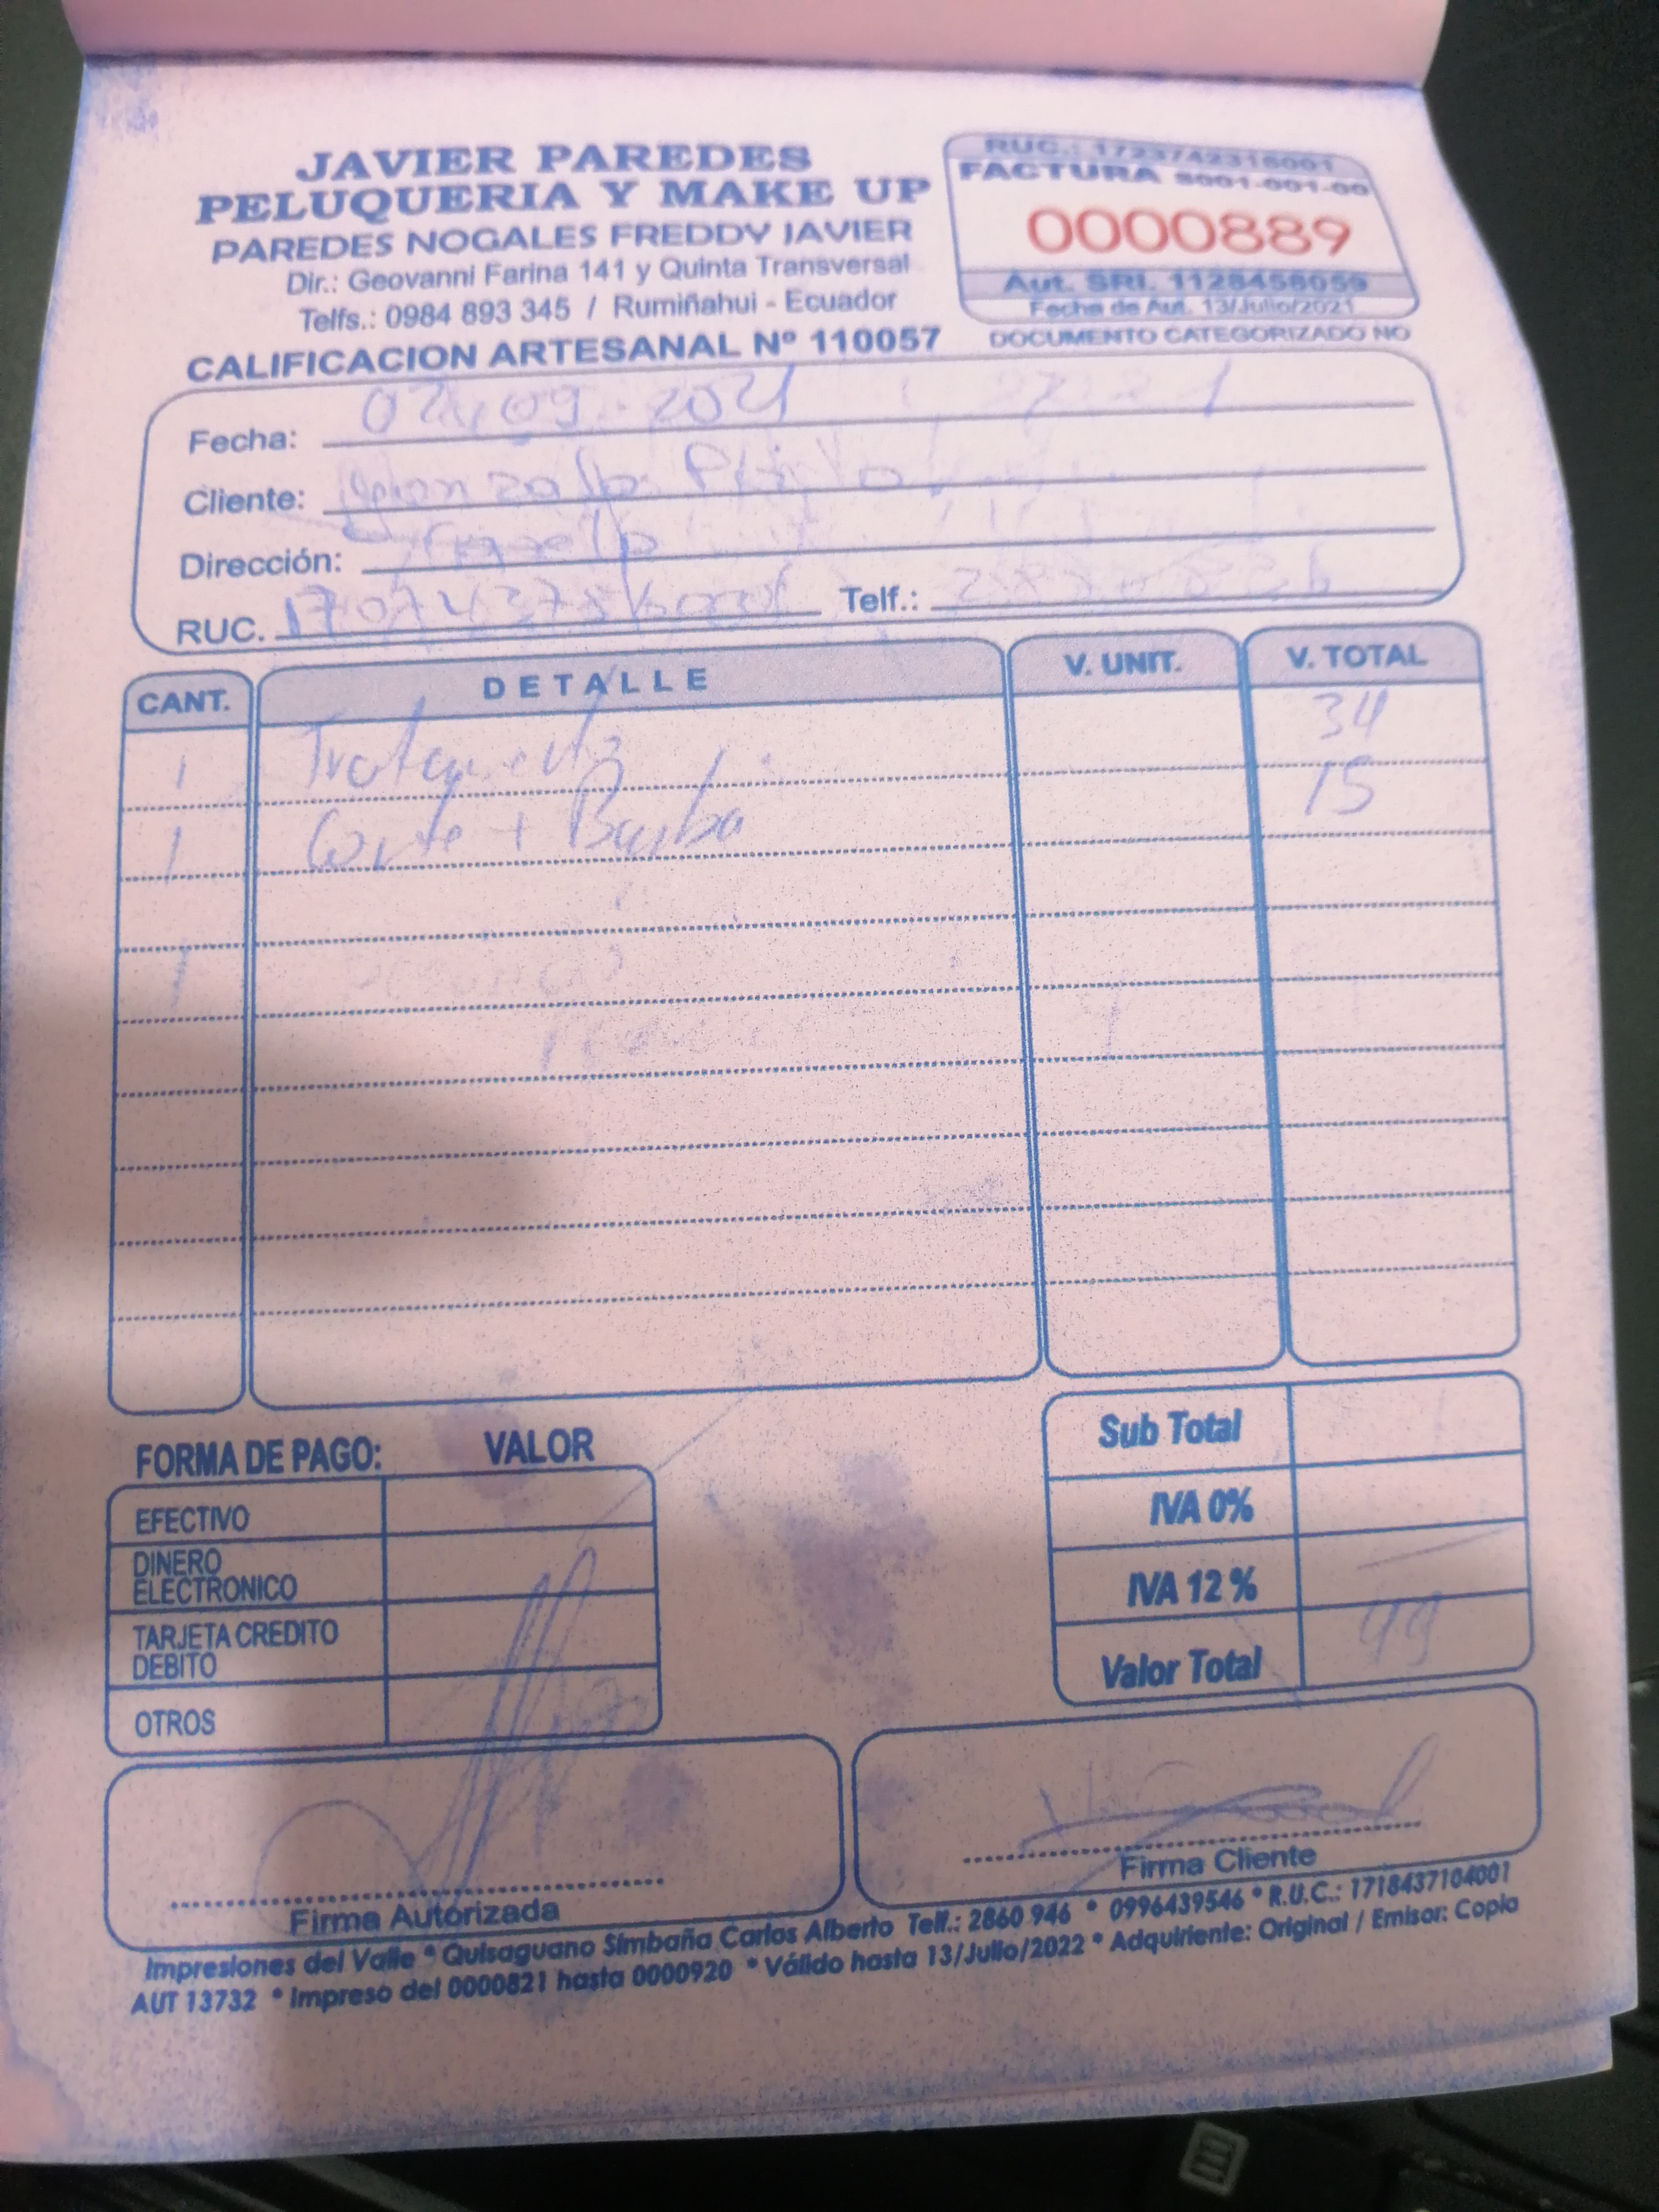 JAVIER PAREDES
PELUQUERIA Y MAKE UP
PAREDES NOGALES FREDDY JAVIER
Dir.: Geovanni Farina 141 y Quinta Transversal
Telfs.: 0984 893 345 / Rumiñahui - Ecuador
CALIFICACION ARTESANAL Nº 110057
RUC.: 1723742316001
FACTURA S001-001-00
0000889
Aut. SRI. 1128458059
Fecha de Aut. 13/Julio/2021
DOCUMENTO CATEGORIZADO NO
Fecha: 02 09 2021
Cliente: Gonzalo
Dirección:
RUC.
Telf.:
CANT. DETALLE V. UNIT. V. TOTAL
1 Tratamiento 34
1 Corte + Barba 15
FORMA DE PAGO: VALOR
EFECTIVO
DINERO ELECTRONICO
TARJETA CREDITO DEBITO
OTROS
Sub Total
IVA 0%
IVA 12 %
Valor Total 49
Firma Autorizada
Firma Cliente
Impresiones del Valle * Quisaguano Simbaña Carlos Alberto Telf.: 2860 946 * 0996439546 * R.U.C.: 1718437104001
AUT 13732 * Impreso del 0000821 hasta 0000920 * Válido hasta 13/Julio/2022 * Adquiriente: Original / Emisor: Copia